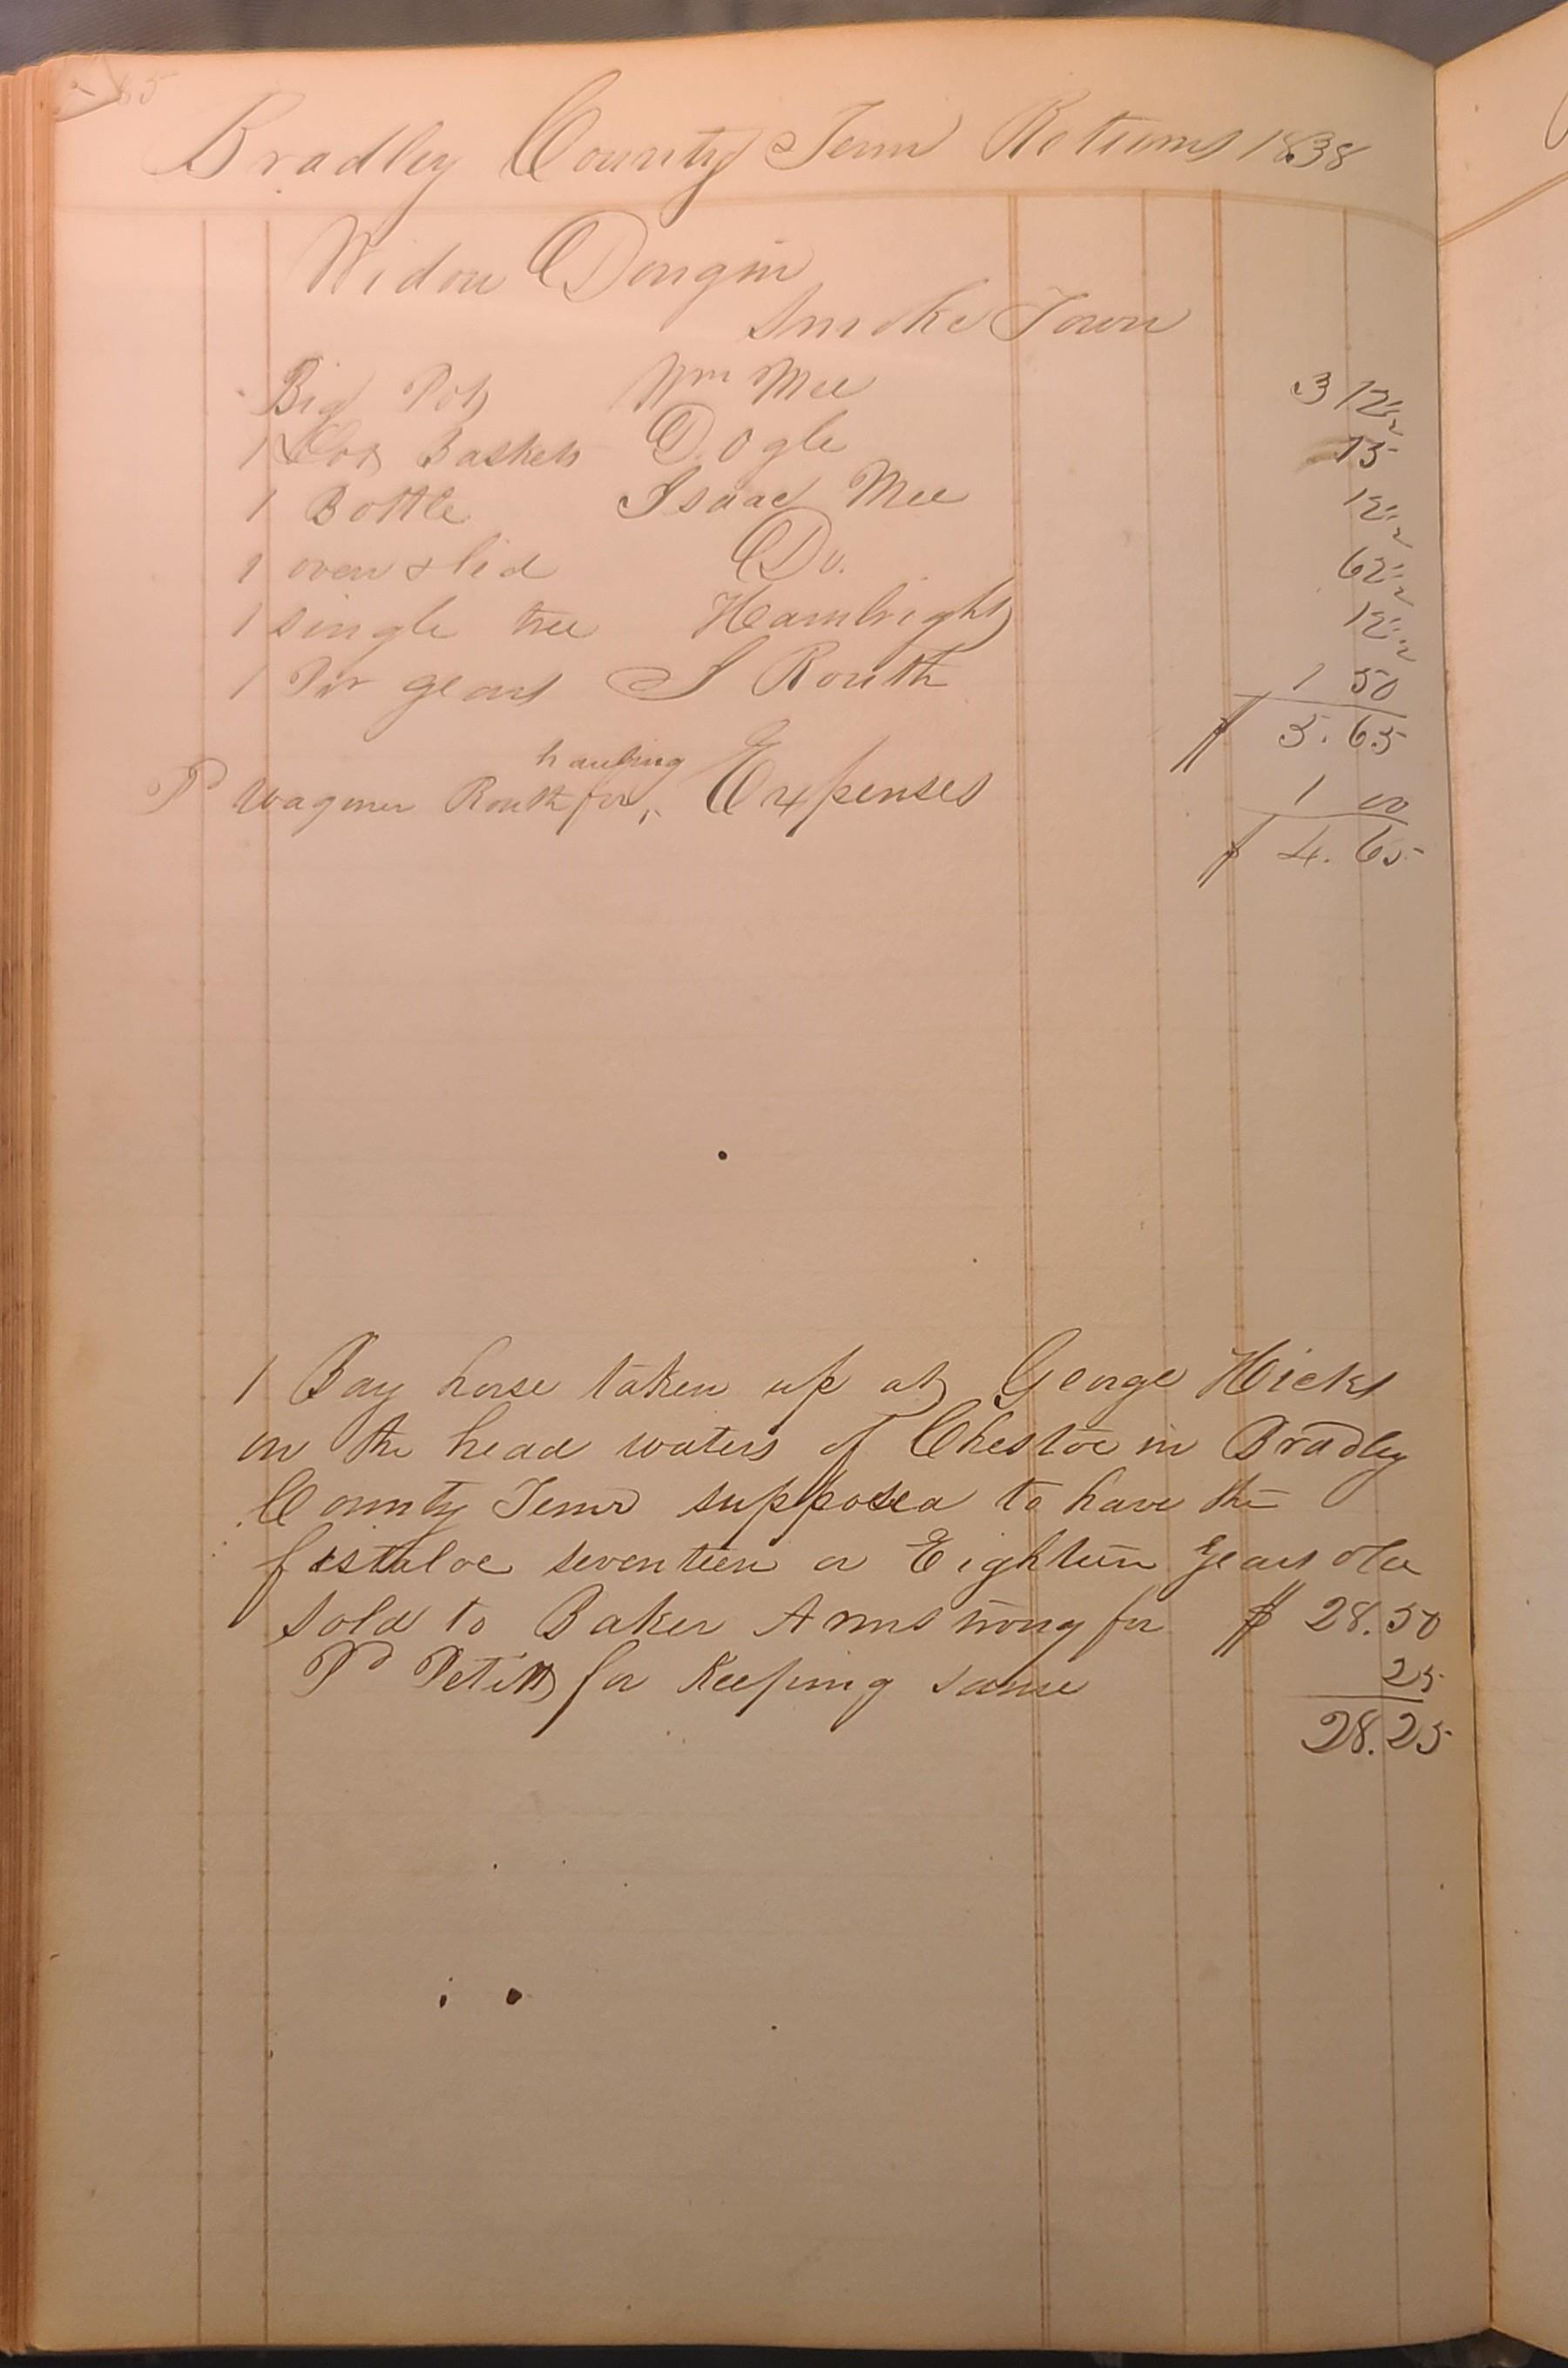 65
Bradley County Tenn Returns 1838
Widow Dougin
Smoke Town
Big Pot Wm Mee 3 12½
1 Lot Baskets D. Ogle 15
1 Bottle Isaac Mee 12½
1 oven & lid Do. 62½
1 single tree Hambright 12½
1 Pr gears S Routh 1 50
$ 5.65
hauling
Pd Wagoner Routh for ^ Expenses 1 00
$ 4.65
1 Bay horse taken up at George Hicks
on the head waters of Chestoe in Bradley
County Tenn supposed to have the
fistuloe seventeen or Eighteen years old
sold to Baker Armstrong for $ 28.50
Pd Petitt for Keeping same 25
28.25